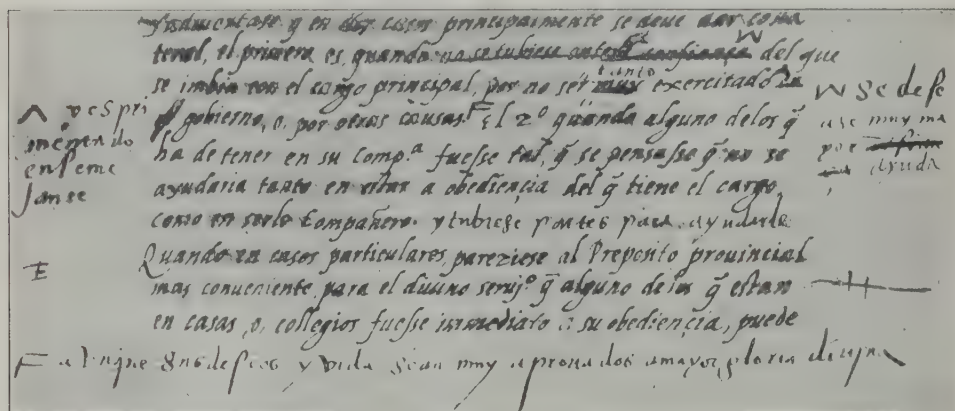 y en dos casos principalmente se deue dar cola
teral, el primero es, quando no se tubiese entera confiança del que
se imbia con el cargo principal, por no ser tanto muy exercitado en
gobierno, o, por otras causas. El 2º quando alguno de los q̄
ha de tener en su Comp.ª fuesse tal, q̄ se pensasse q̄ no se
ayudaria tanto en estar a obediençia del q̄ tiene el cargo,
como en serle Compañero. y tubiese partes para ayudarle
Quando en casos particulares, pareziese al Preposito prouincial
mas conueniente para el diuino seruiº q̄ alguno de los q̄ estan
en casas, o, collegios fuesse immediato a su obediençia, puede
y espri
mentado
en seme
jante
W se dese
ase muy ma
yor
ayuda
F aunque sus deseos y vida sean muy aprouados a mayor gloria diuina